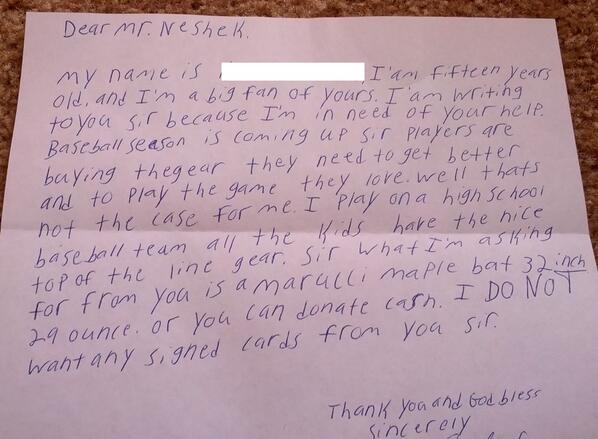 Dear Mr. Neshek.
My name is , I'am fifteen years
old, and I'm a big fan of yours. I'am writing
to you sir because I'm in need of your help.
Baseball season is coming up sir players are
buying thegear they need to get better
and to play the game they love. well thats
not the case for me. I play on a high school
baseball team all the kids have the nice
top of the line gear. Sir what I'm asking
for from you is a marucci maple bat 32 inch
29 ounce. or you can donate cash. I DO NOT
want any signed cards from you sir.
Thank you and God bless
Sincerely